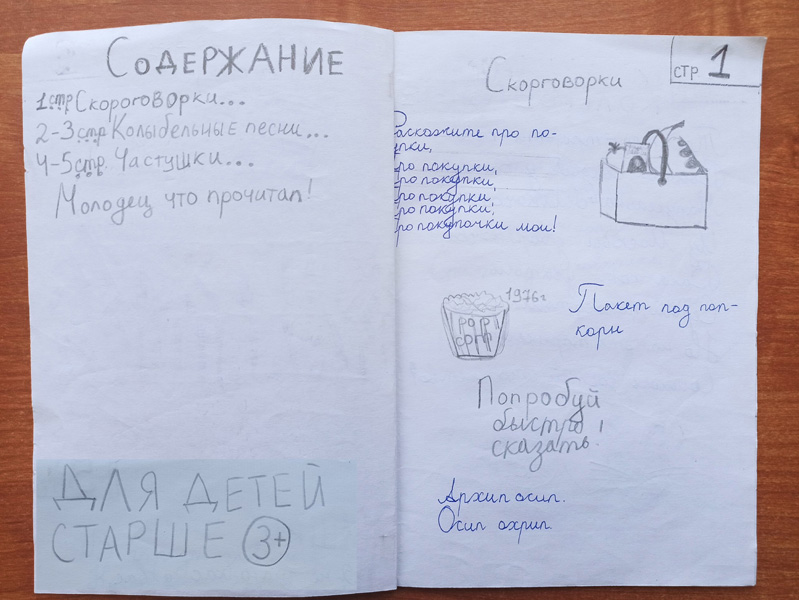 СОДЕРЖАНИЕ
1стр Скороговорки...
2-3стр Колыбельные песни...
4-5стр. Частушки...
Молодец что прочитал!
ДЛЯ ДЕТЕЙ
СТАРШЕ 3+
СТР 1
Скорговорки
Расскажите про по-
упки,
про покупки,
про покупки,
про покупки,
про покупки,
про покупочки мои!
1976г
POP
CORN
Пакет под поп-
корн
Попробуй
быстро
сказать!
Архип осип.
Осип охрип.